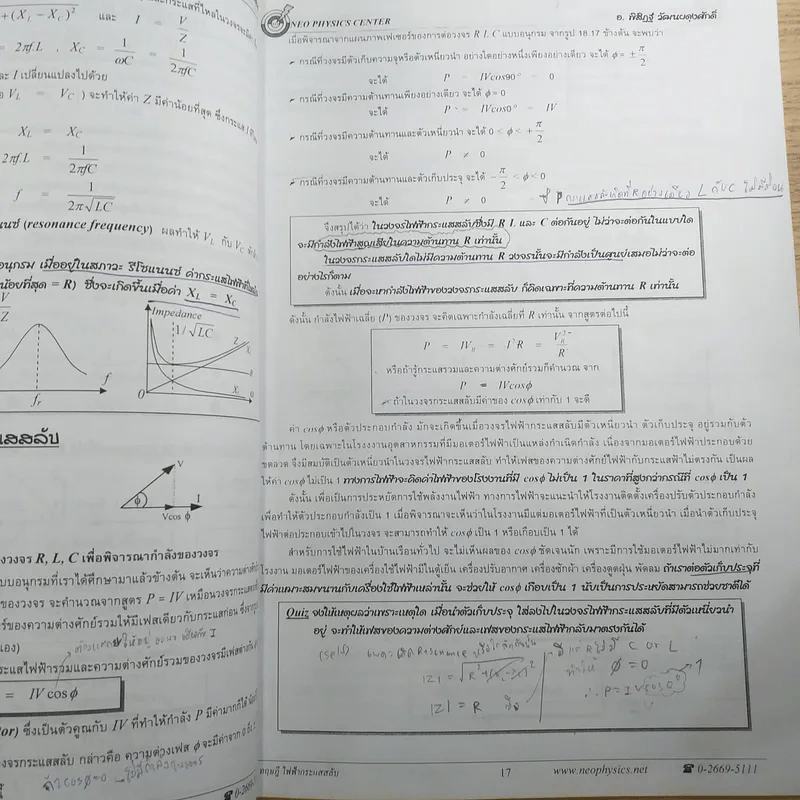 +(X_L − X_C)²
และ I = V/Z
= 2πfL , X_C = 1/ωC = 1/2πfC
I เปลี่ยนแปลงไปด้วย
V_L = V_C ) จะทำให้ค่า Z มีค่าน้อยที่สุด
X_L = X_C
2πfL = 1/2πfC
f = 1/2π√LC
(resonance frequency) ผลทำให้ V_L กับ V_C
อนุกรม เมื่ออยู่ในสภาวะ รีโซแนนซ์ ค่ากระแสไฟฟ้า
น้อยที่สุด = R) ซึ่งจะเกิดขึ้นเมื่อค่า X_L = X_C
V/Z
f
f_r
Impedance
1/√LC
Z
X_L
R
X_C
0
V
ϕ
I
Vcos ϕ
วงจร R, L, C เพื่อพิจารณากำลังของวงจร
แบบอนุกรมที่เราได้ศึกษามาแล้วข้างต้น จะเห็นว่าความต่างศักย์
ของวงจร จะคำนวณจากสูตร P = IV เหมือนวงจรกระแส
ของความต่างศักย์รวมให้มีเฟสเดียวกับกระแสก่อน
เอง)
กระแสไฟฟ้ารวมและความต่างศักย์รวมของวงจรมีเฟสต่างกัน
= IV cos ϕ
ซึ่งเป็นตัวคูณกับ IV ที่ทำให้กำลัง P มีค่ามากก็ได้
วงจรกระแสสลับ กล่าวคือ ความต่างเฟส ϕ จะมีค่าจาก 0 ถึง
NEO PHYSICS CENTER
อ. พิสิฏฐ์ วัฒนผดุงศักดิ์
เมื่อพิจารณาจากแผนภาพเฟเซอร์ของการต่อวงจร R L C แบบอนุกรม จากรูป 18.17 ข้างต้น จะพบว่า
➢ กรณีที่วงจรมีตัวเก็บความจุหรือตัวเหนี่ยวนำ อย่างใดอย่างหนึ่งเพียงอย่างเดียว จะได้ ϕ = ± π/2
จะได้ P = IVcos90° = 0
➢ กรณีที่วงจรมีความต้านทานเพียงอย่างเดียว จะได้ ϕ = 0
จะได้ P = IVcos0° = IV
➢ กรณีที่วงจรมีความต้านทานและตัวเหนี่ยวนำ จะได้ 0 < ϕ < + π/2
จะได้ P ≠ 0
➢ กรณีที่วงจรมีความต้านทานและตัวเก็บประจุ จะได้ − π/2 < ϕ < 0
จะได้ P ≠ 0
จึงสรุปได้ว่า ในวงจรไฟฟ้ากระแสสลับซึ่งมี R L และ C ต่อกันอยู่ ไม่ว่าจะต่อกันในแบบใด
จะมีกำลังไฟฟ้าสูญเสียในความต้านทาน R เท่านั้น
ในวงจรกระแสสลับใดไม่มีความต้านทาน R วงจรนั้นจะมีกำลังเป็นศูนย์เสมอไม่ว่าจะต่อ
อย่างไรก็ตาม
ดังนั้น เมื่อจะหากำลังไฟฟ้าของวงจรกระแสสลับ ก็คิดเฉพาะที่ความต้านทาน R เท่านั้น
ดังนั้น กำลังไฟฟ้าเฉลี่ย (P) ของวงจร จะคิดเฉพาะกำลังเฉลี่ยที่ R เท่านั้น จากสูตรต่อไปนี้
P = IV_R = I²R = V_R²/R
หรือถ้ารู้กระแสรวมและความต่างศักย์รวมก็คำนวณ จาก
P = IVcosϕ
ถ้าในวงจรกระแสสลับมีค่าของ cosϕ เท่ากับ 1 จะดี
ค่า cosϕ หรือตัวประกอบกำลัง มักจะเกิดขึ้นเมื่อวงจรไฟฟ้ากระแสสลับมีตัวเหนี่ยวนำ ตัวเก็บประจุ อยู่รวมกับตัว
ต้านทาน โดยเฉพาะในโรงงานอุตสาหกรรมที่มีมอเตอร์ไฟฟ้าเป็นแหล่งกำเนิดกำลัง เนื่องจากมอเตอร์ไฟฟ้าประกอบด้วย
ขดลวด จึงมีสมบัติเป็นตัวเหนี่ยวนำในวงจรไฟฟ้ากระแสสลับ ทำให้เฟสของความต่างศักย์ไฟฟ้ากับกระแสฟ้าไม่ตรงกัน เป็นผล
ให้ค่า cosϕ ไม่เป็น 1 ทางการไฟฟ้าจะคิดค่าไฟฟ้าของโรงงานที่มี cosϕ ไม่เป็น 1 ในราคาที่สูงกว่ากรณีที่ cosϕ เป็น 1
ดังนั้น เพื่อเป็นการประหยัดการใช้พลังงานไฟฟ้า ทางการไฟฟ้าจะแนะนำให้โรงงานติดตั้งเครื่องปรับตัวประกอบกำลัง
เพื่อทำให้ตัวประกอบกำลังเป็น 1 เมื่อพิจารณาจะเห็นว่าในโรงงานมีแต่มอเตอร์ไฟฟ้าที่เป็นตัวเหนี่ยวนำ เมื่อนำตัวเก็บประจุ
ไฟฟ้าต่อประกอบเข้าไปในวงจร จะสามารถทำให้ cosϕ เป็น 1 หรือเกือบเป็น 1 ได้
สำหรับการใช้ไฟฟ้าในบ้านเรือนทั่วไป จะไม่เห็นผลของ cosϕ ชัดเจนนัก เพราะมีการใช้มอเตอร์ไฟฟ้าไม่มากเท่ากับ
โรงงาน มอเตอร์ไฟฟ้าของเครื่องใช้ไฟฟ้ามีในตู้เย็น เครื่องปรับอากาศ เครื่องซักผ้า เครื่องดูดฝุ่น พัดลม ถ้าเราต่อตัวเก็บประจุที่
มีค่าเหมาะสมขนานกับเครื่องใช้ไฟฟ้าเหล่านั้น จะช่วยให้ cosϕ เกือบเป็น 1 นับเป็นการประหยัดสามารถช่วยชาติได้
Quiz จงให้เหตุผลว่าเพราะเหตุใด เมื่อนำตัวเก็บประจุ ใส่ลงไปในวงจรไฟฟ้ากระแสสลับที่มีตัวเหนี่ยวนำ
อยู่ จะทำให้เฟสของความต่างศักย์และเฟสของกระแสไฟฟ้ากลับมาตรงกันได้
|Z| = R
ทำให้ ϕ = 0
∴ P = IVcos0°
1
ทฤษฎี ไฟฟ้ากระแสสลับ
17
www.neophysics.net
☎ 0-2669-5111